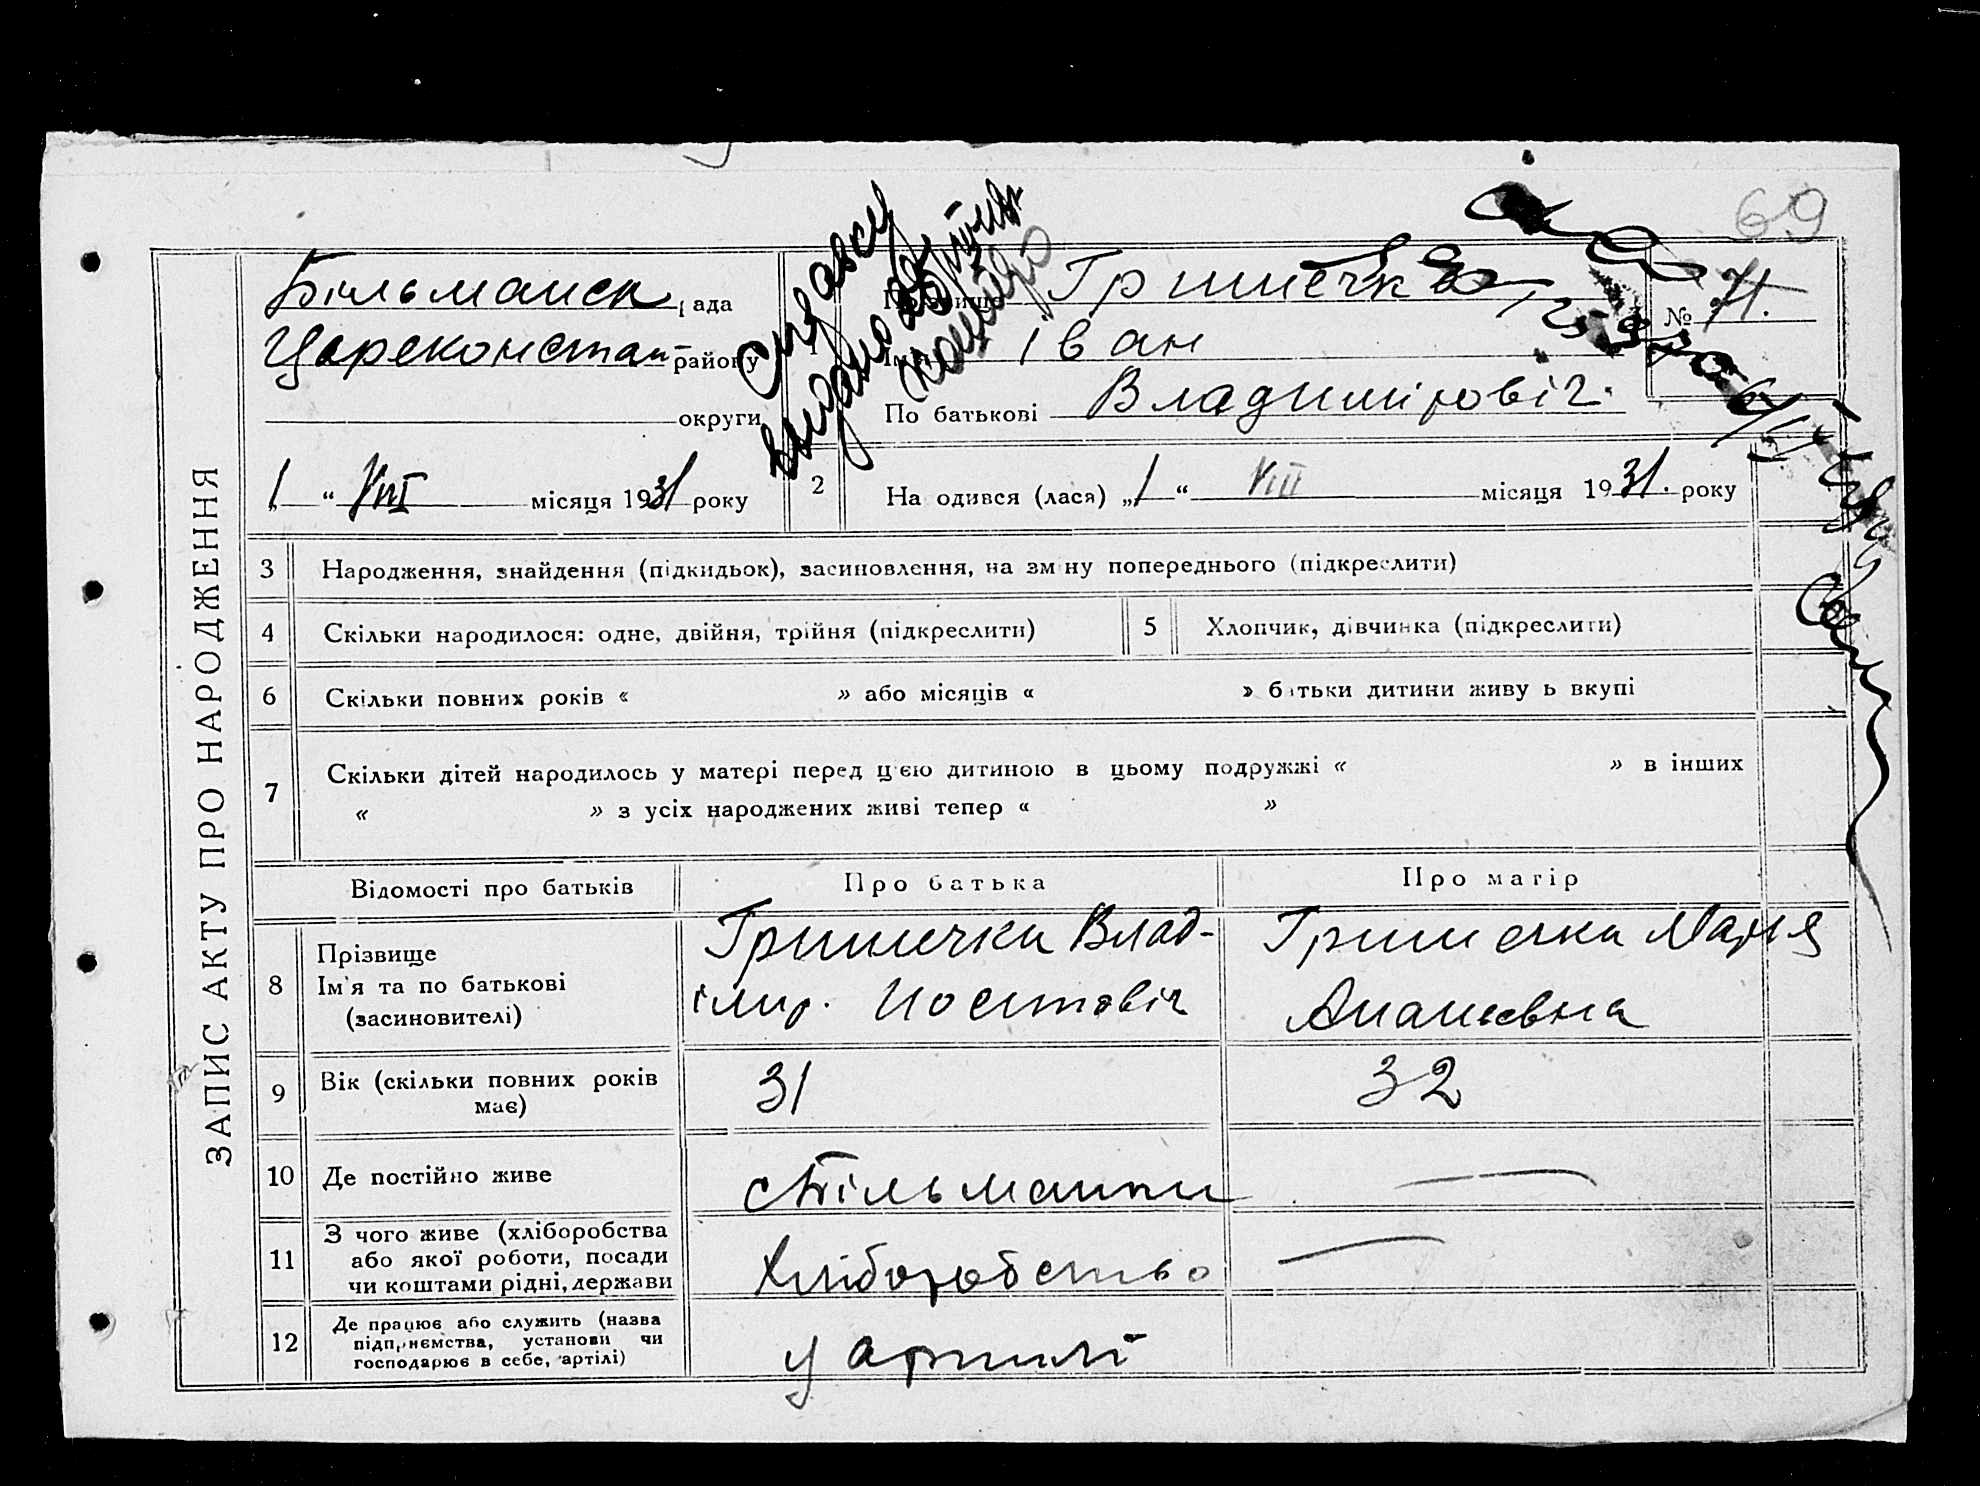 69
Більманск рада
Цареконстан району
округи
„ 1 “ VIII місяця 1931 року
1
Прізвище Гришечка
Ім'я Іван
По батькові Владиміровіч.
№ 71.
2
На одився (лася) „ 1 “ VIII місяця 1931. року
ЗАПИС АКТУ ПРО НАРОДЖЕННЯ
3 Народження, знайдення (підкидьок), засиновлення, на зміну попереднього (підкреслити)
4 Скільки народилося: одне, двійня, трійня (підкреслити)
5 Хлопчик, дівчинка (підкреслити)
6 Скільки повних років « » або місяців « » батьки дитини живу ь вкупі
7 Скільки дітей народилось у матері перед цією дитиною в цьому подружжі « » в інших
« » з усіх народжених живі тепер « »
Відомості про батьків
Про батька
Про матір
8 Прізвище
Ім'я та по батькові
(засиновителі)
Гришечка Влад-
імир.
Гришечка Марія
Ананьевна
9 Вік (скільки повних років
має)
31
32
10 Де постійно живе
с Більманки
—
11 З чого живе (хліборобства
або якої роботи, посади
чи коштами рідні, держави
Хліборобство
—
12 Де працює або служить (назва
підприємства, установи чи
господарює в себе, артілі)
у артилі